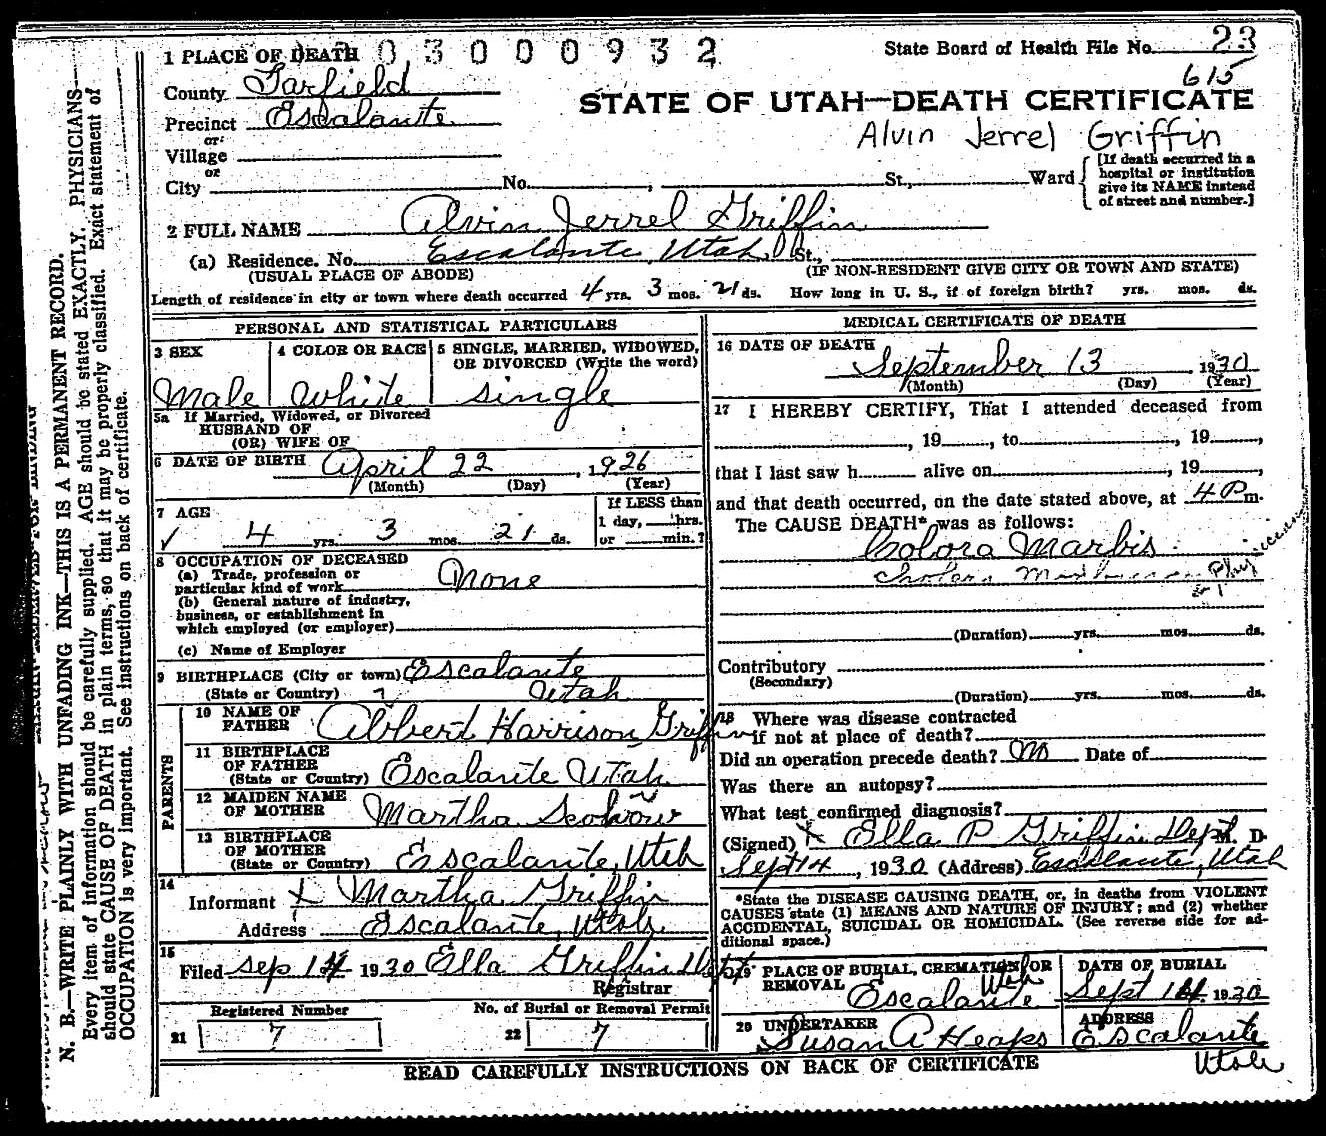 1 PLACE OF DEATH 0 3 0 0 0 9 3 2 State Board of Health File No. 23
615
County Garfield
STATE OF UTAH—DEATH CERTIFICATE
Precinct Escalante
Alvin Jerrel Griffin
or
Village
or
City No. , St., Ward
[If death occurred in a
hospital or institution
give its NAME instead
of street and number.]
2 FULL NAME Alvin Jerrel Griffin
(a) Residence. No. Escalante, Utah St.,
(USUAL PLACE OF ABODE) (IF NON-RESIDENT GIVE CITY OR TOWN AND STATE)
Length of residence in city or town where death occurred 4 yrs. 3 mos. 21 ds. How long in U. S., if of foreign birth? yrs. mos. ds.
PERSONAL AND STATISTICAL PARTICULARS
3 SEX 4 COLOR OR RACE 5 SINGLE, MARRIED, WIDOWED,
OR DIVORCED (Write the word)
Male white single
5a If Married, Widowed, or Divorced
HUSBAND OF
(OR) WIFE OF
6 DATE OF BIRTH April 22, 1926
(Month) (Day) (Year)
7 AGE If LESS than
1 day, hrs.
4 yrs. 3 mos. 21 ds. or min.?
8 OCCUPATION OF DECEASED
(a) Trade, profession or
particular kind of work None
(b) General nature of industry,
business, or establishment in
which employed (or employer)
(c) Name of Employer
9 BIRTHPLACE (City or town) Escalante
(State or Country) Utah
PARENTS
10 NAME OF
FATHER Albert Harrison Griffin
11 BIRTHPLACE
OF FATHER
(State or Country) Escalante Utah
12 MAIDEN NAME
OF MOTHER Martha
13 BIRTHPLACE
OF MOTHER
(State or Country) Escalante, Utah
14
Informant X Martha Griffin
Address Escalante, Utah
15
Filed Sep 14 1930 Ella Griffin Dept
Registrar
Registered Number No. of Burial or Removal Permit
21 7 22 7
MEDICAL CERTIFICATE OF DEATH
16 DATE OF DEATH
September 13, 1930
(Month) (Day) (Year)
17 I HEREBY CERTIFY, That I attended deceased from
, 19 , to , 19 ,
that I last saw h alive on , 19 ,
and that death occurred, on the date stated above, at 4 P m.
The CAUSE DEATH* was as follows:
Colora Marbis
Cholera
(Duration) yrs. mos. ds.
Contributory
(Secondary)
(Duration) yrs. mos. ds.
18 Where was disease contracted
if not at place of death?
Did an operation precede death? No Date of
Was there an autopsy?
What test confirmed diagnosis?
(Signed) X Ella P Griffin Dept M. D.
Sept 14, 1930 (Address) Escalante, Utah
*State the DISEASE CAUSING DEATH, or, in deaths from VIOLENT
CAUSES state (1) MEANS AND NATURE OF INJURY; and (2) whether
ACCIDENTAL, SUICIDAL OR HOMICIDAL. (See reverse side for ad-
ditional space.)
19 PLACE OF BURIAL, CREMATION OR DATE OF BURIAL
REMOVAL Escalante Utah Sept 14 1930
20 UNDERTAKER ADDRESS
Susan A Heaps Escalante
Utah
READ CAREFULLY INSTRUCTIONS ON BACK OF CERTIFICATE
N. B.—WRITE PLAINLY WITH UNFADING INK—THIS IS A PERMANENT RECORD.
Every item of information should be carefully supplied. AGE should be stated EXACTLY. PHYSICIANS
should state CAUSE OF DEATH in plain terms, so that it may be properly classified. Exact statement of
OCCUPATION is very important. See instructions on back of certificate.